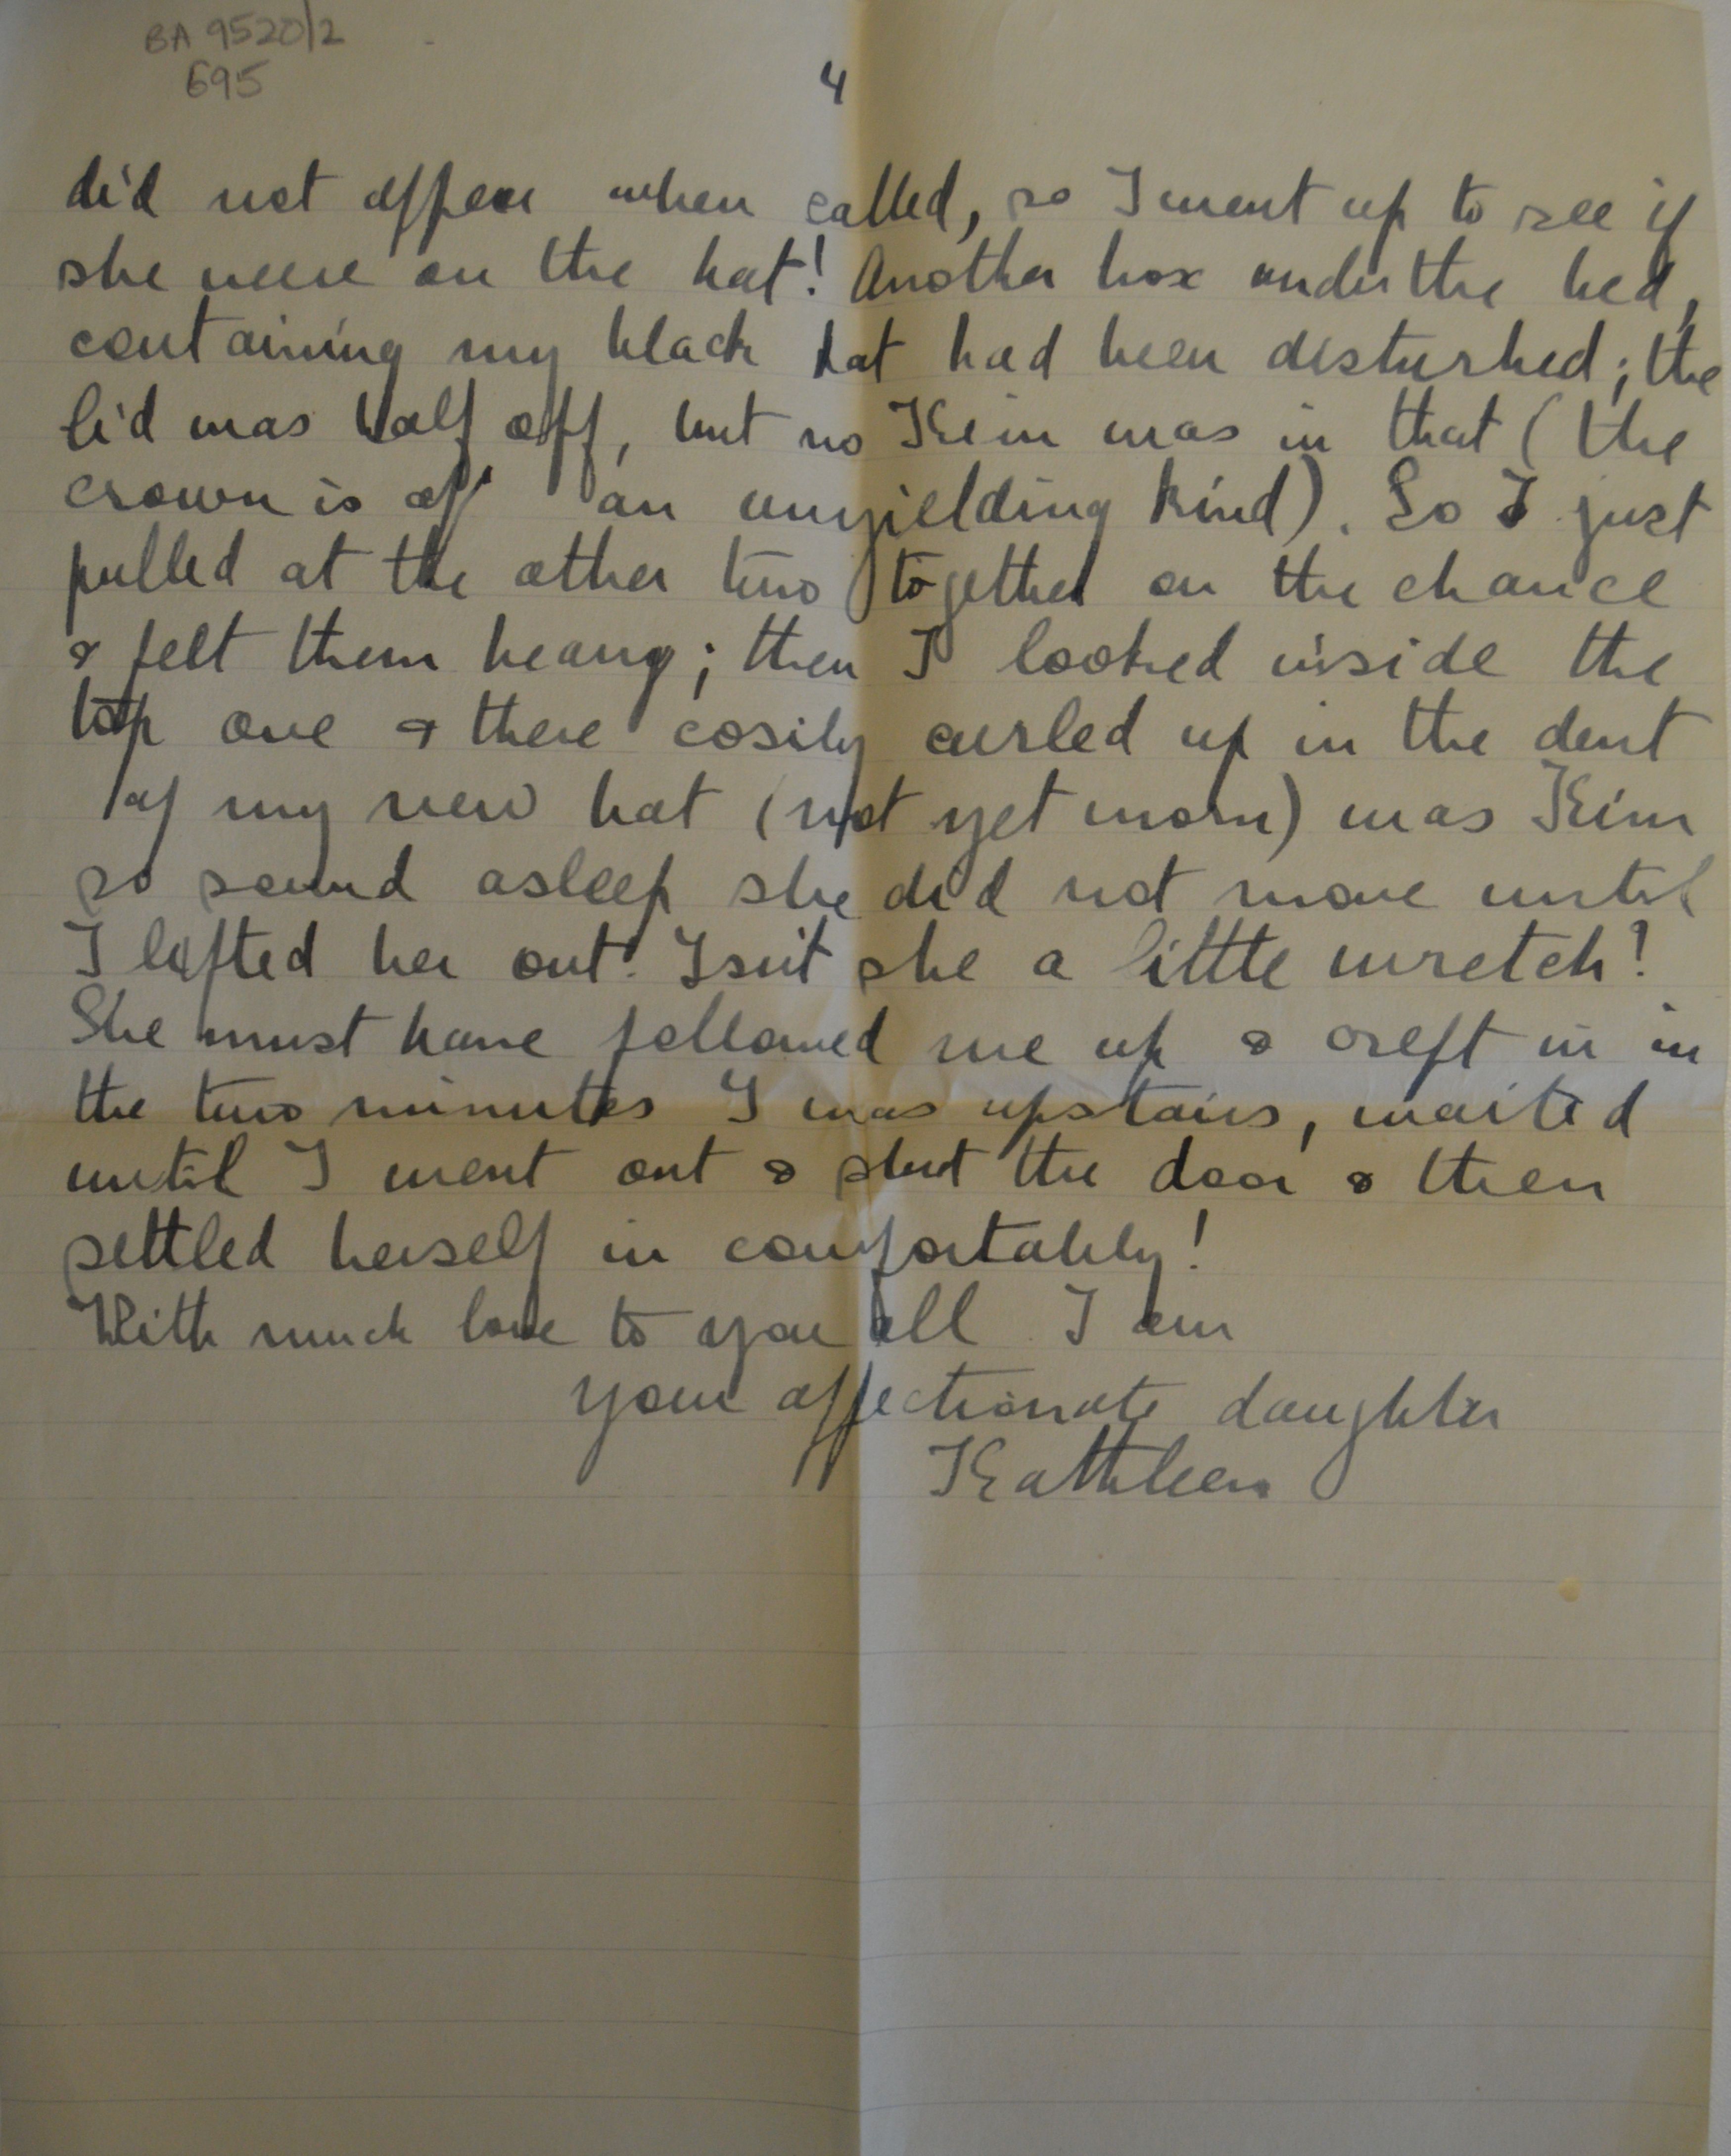 BA 9520/2
695
4
did not appear when called, so I went up to see if
she were on the hat! Another box under the bed,
containing my black hat had been disturbed; the
lid was half off, but no Kim was in that (the
crown is of an unyielding kind). So I just
pulled at the other two together on the chance
& felt them heavy; then I looked inside the
top one & there cosily curled up in the dent
of my new hat (not yet worn) was Kim
so sound asleep she did not move until
I lifted her out. Isn't she a little wretch?
She must have followed me up & crept in in
the two minutes I was upstairs, waited
until I went out & shut the door & then
settled herself in comfortably!
With much love to you all I am
your affectionate daughter
Kathleen